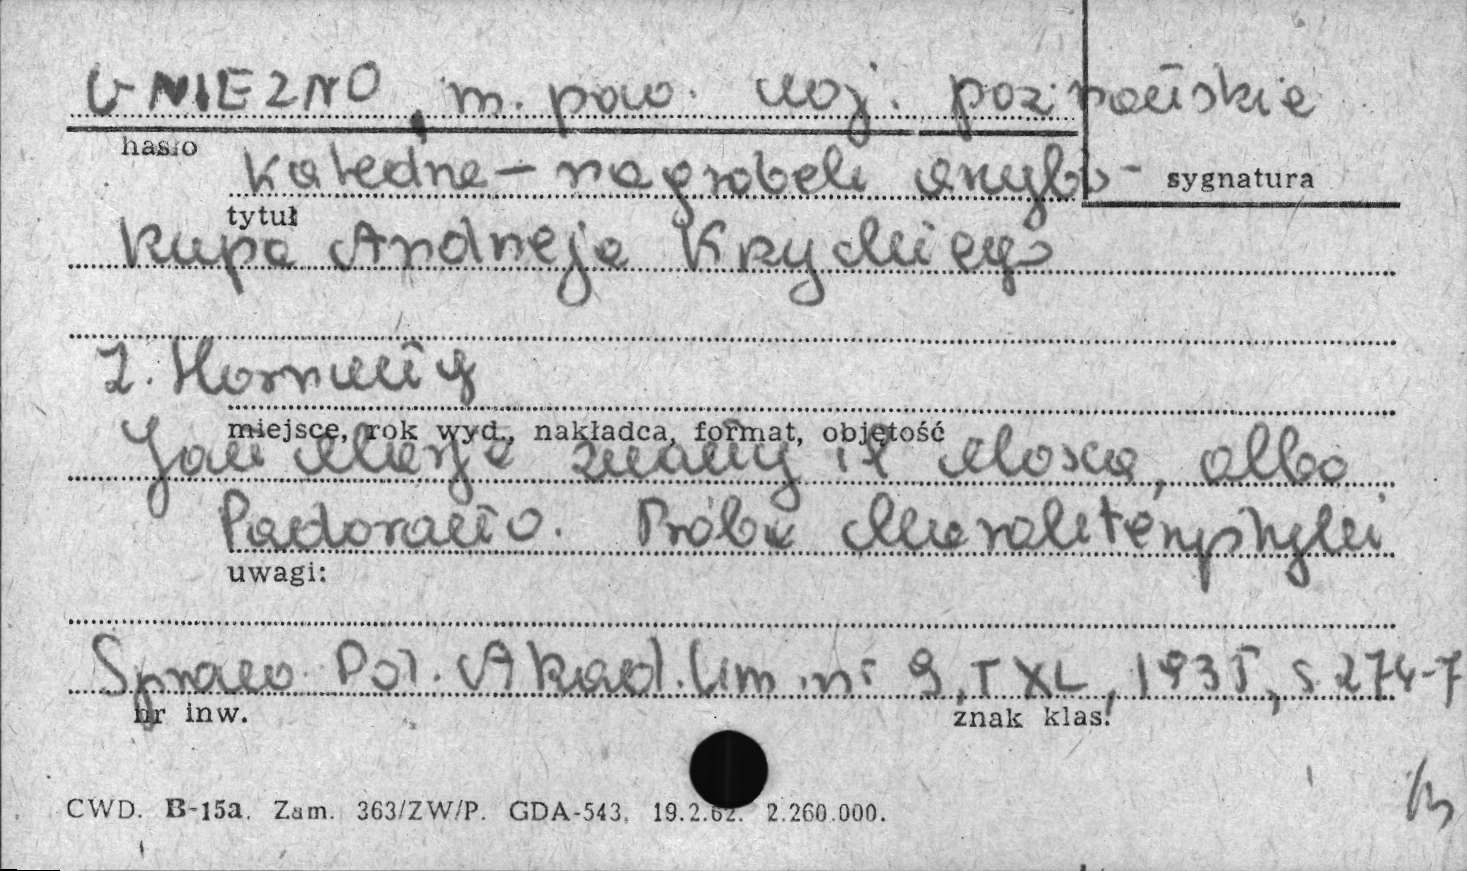 GNIEZNO, m. pow. woj. poznańskie
hasło
Katedra - nagrobek arcybi-
sygnatura
tytuł
kupa Andrzeja Krzyckiego
Z. Hornung
miejsce, rok wyd., nakładca, format, objętość
Jan Maria zwany il Mosca, albo
Padovano. Próba charakterystyki
uwagi:
Spraw. Pol. Akad. Um. nr 9, T XL, 1935, s. 274-7
nr inw.
znak klas.
CWD. B-15a. Zam. 363/ZW/P. GDA-543, 19.2.62. 2.260.000.